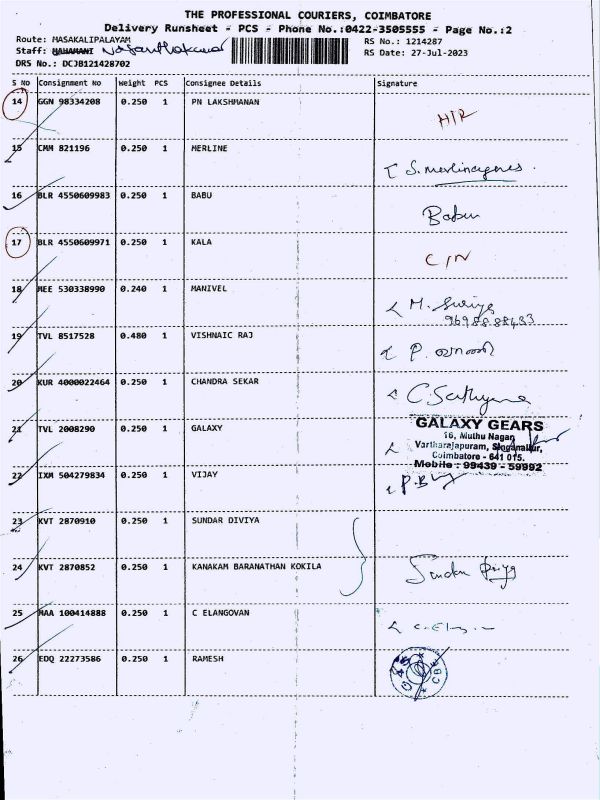 THE PROFESSIONAL COURIERS, COIMBATORE
Delivery Runsheet - PCS - Phone No.:0422-3505555 - Page No.:2
Route: MASAKALIPALAYAM
RS No.: 1214287
Staff: MAHAMANI Vasanthakumar
RS Date: 27-Jul-2023
DRS No.: DCJB121428702
S No Consignment No Weight PCS Consignee Details Signature
14 GGN 98334208 0.250 1 PN LAKSHMANAN
15 CMM 821196 0.250 1 MERLINE S. merlinagnes.
16 BLR 4550609983 0.250 1 BABU Babu
17 BLR 4550609971 0.250 1 KALA C/N
18 MEE 530338990 0.240 1 MANIVEL M. Suriya
9698888483
19 TVL 8517528 0.480 1 VISHNAIC RAJ P.
20 KUR 4000022464 0.250 1 CHANDRA SEKAR C. Sathyama
21 TVL 2008290 0.250 1 GALAXY GALAXY GEARS
16, Muthu Nagar,
Vartharajapuram, Singanallur,
Coimbatore - 641 015.
Mobile : 99439 - 59992
22 IXM 504279834 0.250 1 VIJAY
23 KVT 2870910 0.250 1 SUNDAR DIVIYA
24 KVT 2870852 0.250 1 KANAKAM BARANATHAN KOKILA Sundar
25 MAA 100414888 0.250 1 C ELANGOVAN
26 EDQ 22273586 0.250 1 RAMESH G4S CBE